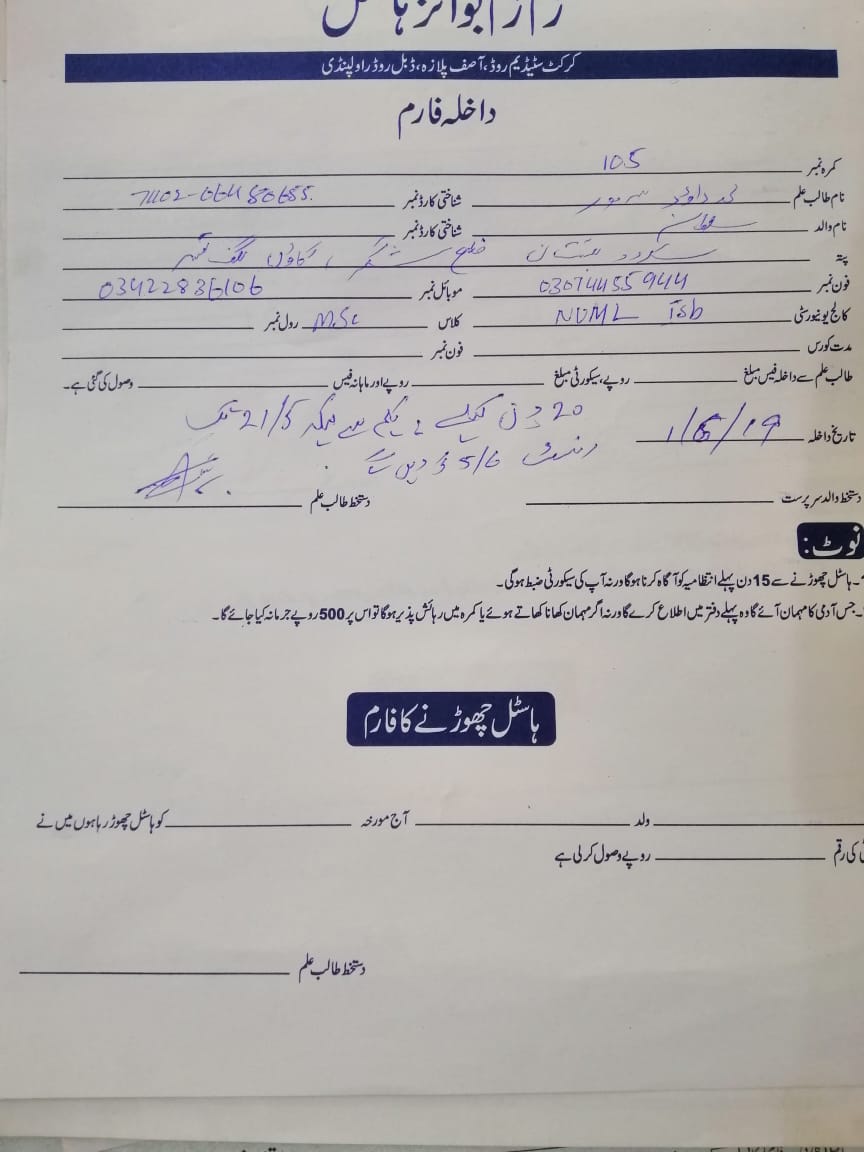 بوائز ہاسٹل
کرکٹ سٹیڈیم روڈ، آصف پلازہ، ڈبل روڈ راولپنڈی
داخلہ فارم
کمرہ نمبر 105
نام طالب علم محمد داؤد سرور شناختی کارڈ نمبر
نام والد شناختی کارڈ نمبر
پتہ سکردو بلتستان ضلع شگر، گاؤں
فون نمبر 03074455944 موبائل نمبر 03422836106
کالج یونیورسٹی NUML Isb کلاس M.Sc رول نمبر
مدت کورس فون نمبر
طالب علم سے داخلہ فیس مبلغ روپے، سیکورٹی مبلغ روپے اور ماہانہ فیس وصول کی گئی ہے۔
20 دن کیلئے، یکم سے لیکر 21/5 تک
تاریخ داخلہ 1/5/19
5/6 کو دیں گے
دستخط والد سرپرست دستخط طالب علم
نوٹ:
ہاسٹل چھوڑنے سے 15 دن پہلے انتظامیہ کو آگاہ کرنا ہوگا ورنہ آپ کی سیکورٹی ضبط ہوگی۔
جس آدمی کا مہمان آئے گا وہ پہلے دفتر میں اطلاع کرے گا ورنہ اگر مہمان کھانا کھاتے ہوئے یا کمرہ میں رہائش پذیر ہوگا تو اس پر 500 روپے جرمانہ کیا جائے گا۔
ہاسٹل چھوڑنے کا فارم
ولد آج مورخہ کو ہاسٹل چھوڑ رہا ہوں میں نے
کی رقم روپے وصول کر لی ہے
دستخط طالب علم